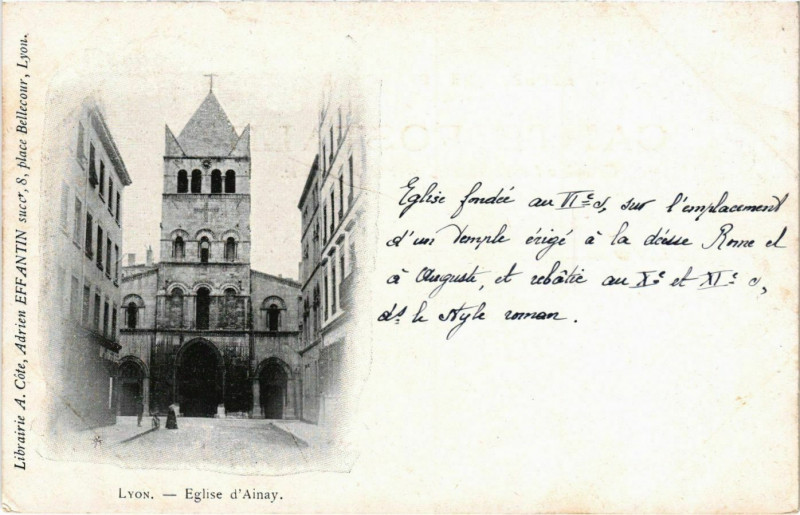 Librairie A. Côte, Adrien EFFANTIN succr, 8, place Bellecour, Lyon.
Eglise fondée au VIe s, sur l'emplacement
d'un Temple érigé à la déesse Rome et
à Auguste, et rebâtie au Xe et XIe s,
ds le style roman.
LYON. — Eglise d'Ainay.